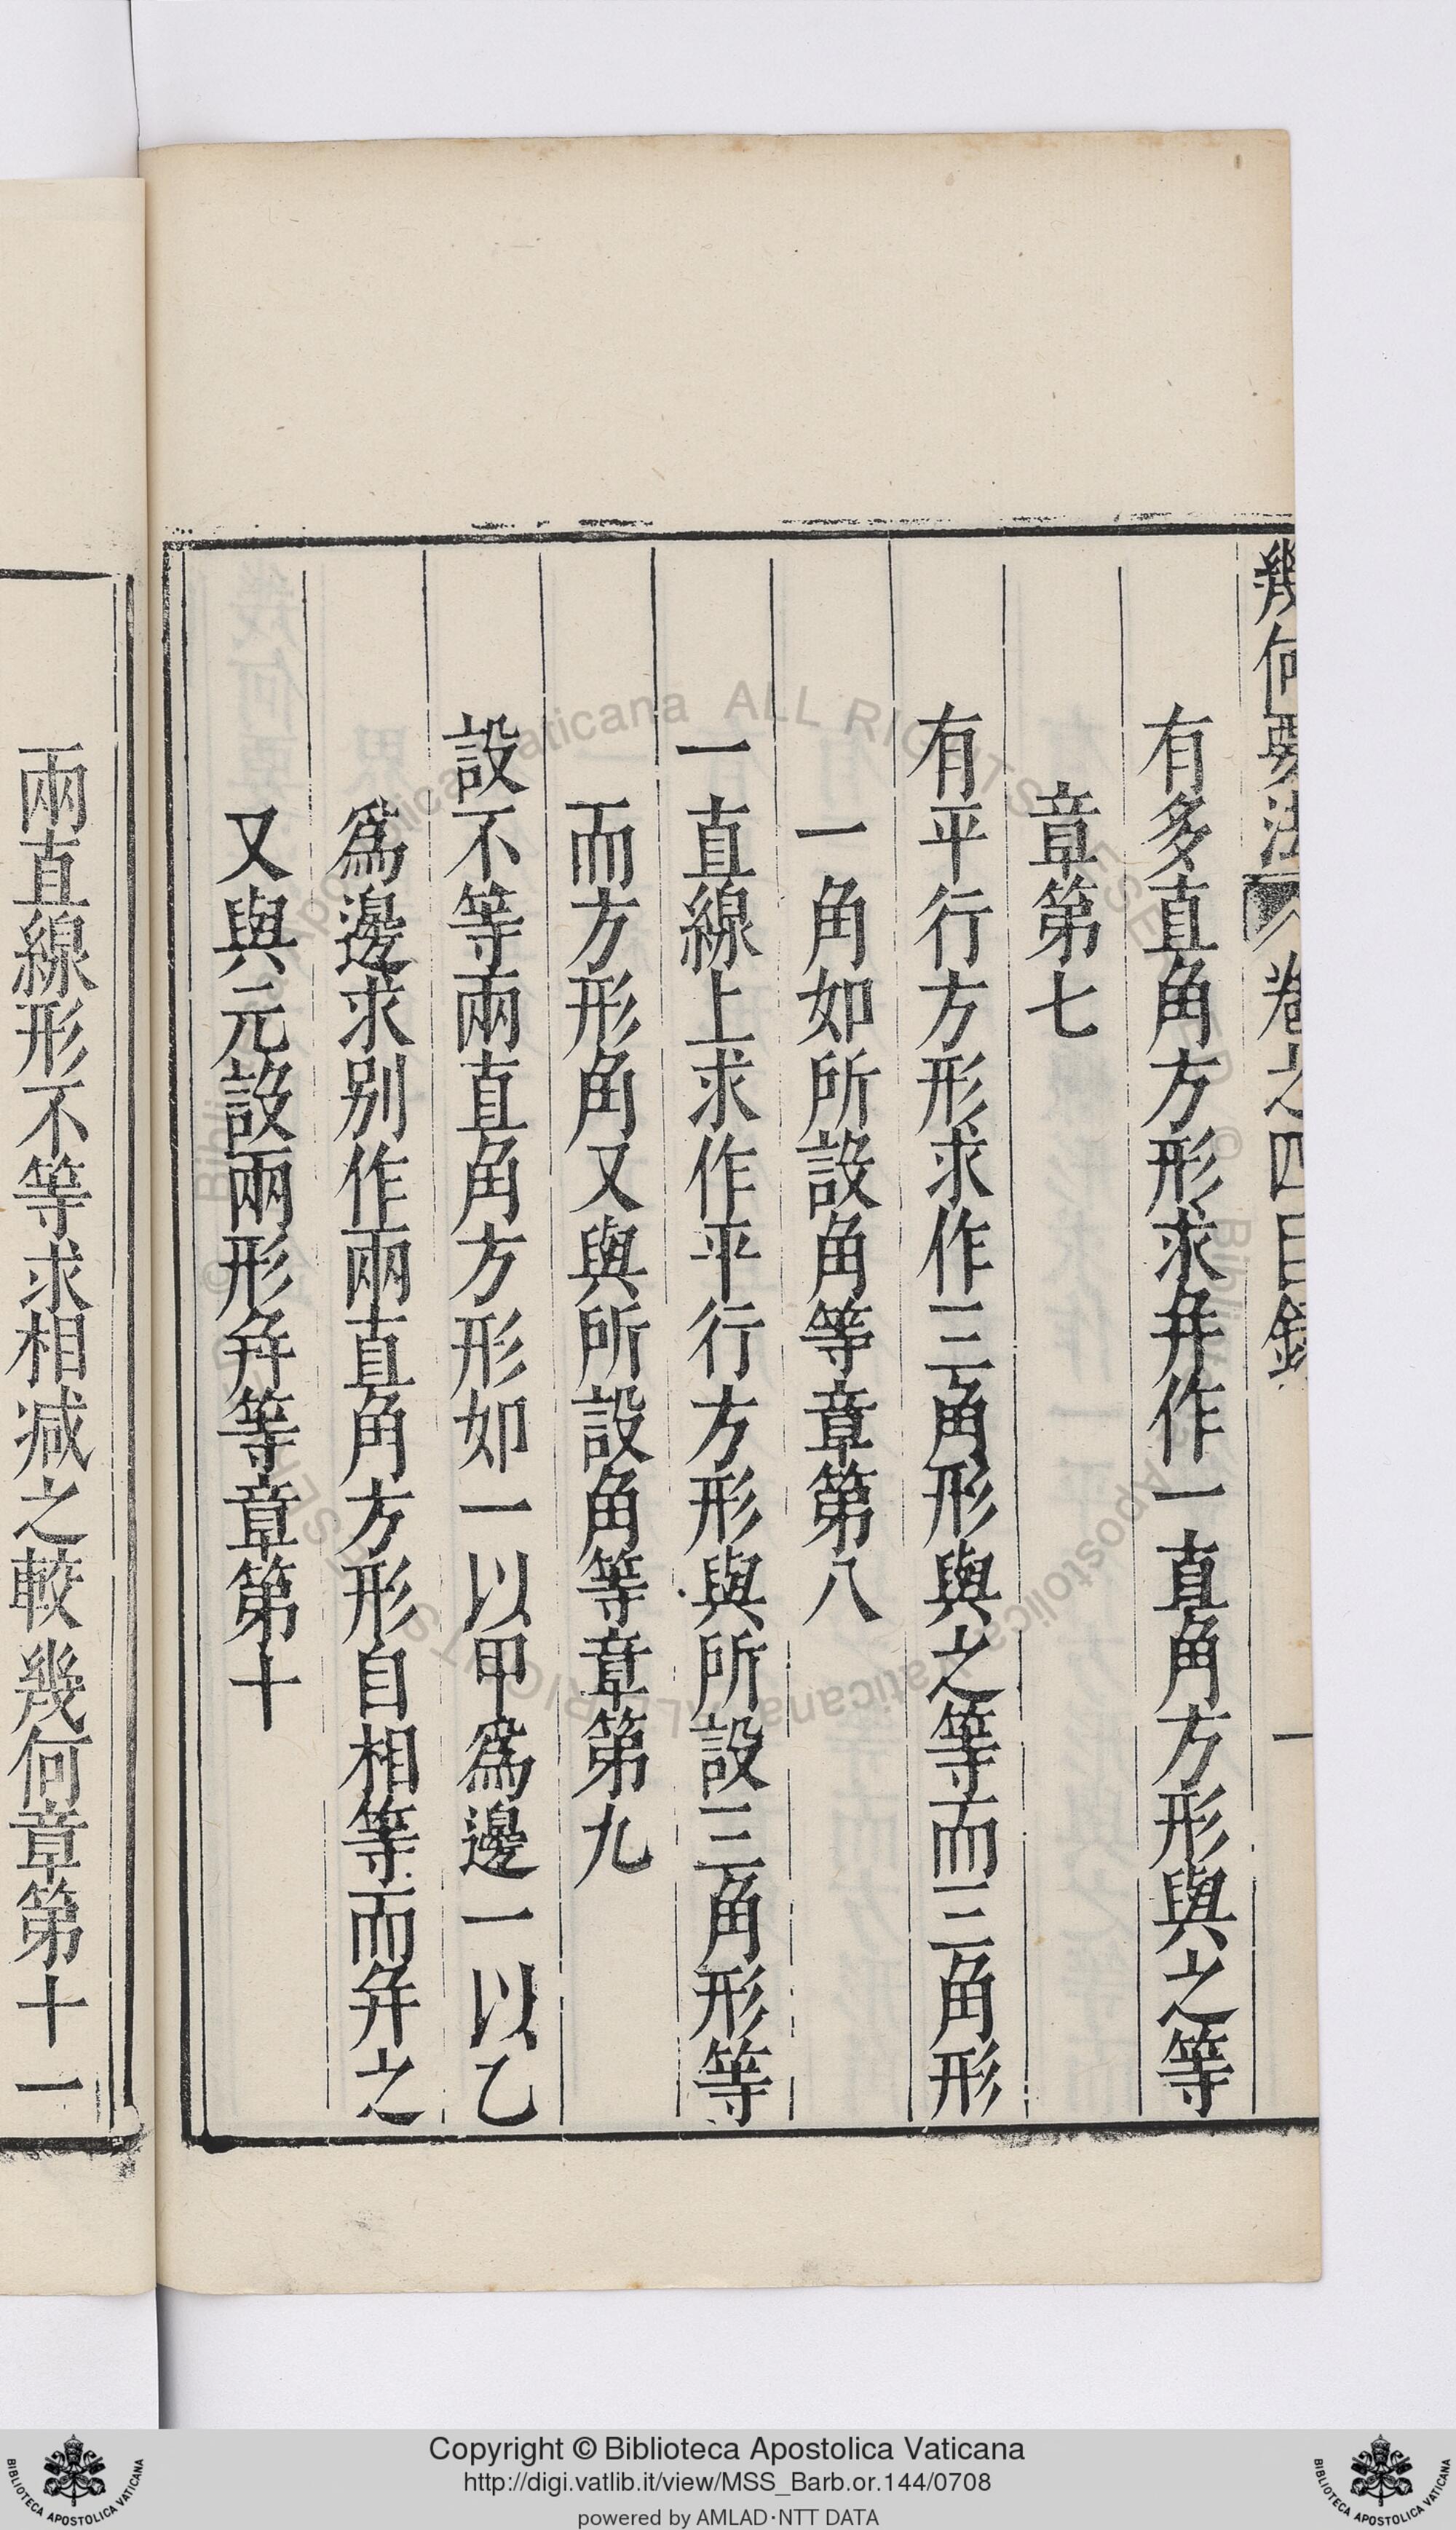 幾何要法 卷之四目錄 一
有多直角方形求并作一直角方形與之等
章第七
有平行方形求作三角形與之等而三角形
一角如所設角等章第八
一直線上求作平行方形與所設三角形等
而方形角又與所設角等章第九
設不等兩直角方形如一以甲爲邊一以乙
爲邊求别作兩直角方形自相等而并之
又與元設兩形并等章第十
兩直線形不等求相减之較幾何章第十一
Copyright © Biblioteca Apostolica Vaticana
http://digi.vatlib.it/view/MSS_Barb.or.144/0708
powered by AMLAD·NTT DATA
BIBLIOTECA APOSTOLICA VATICANA
BIBLIOTECA APOSTOLICA VATICANA